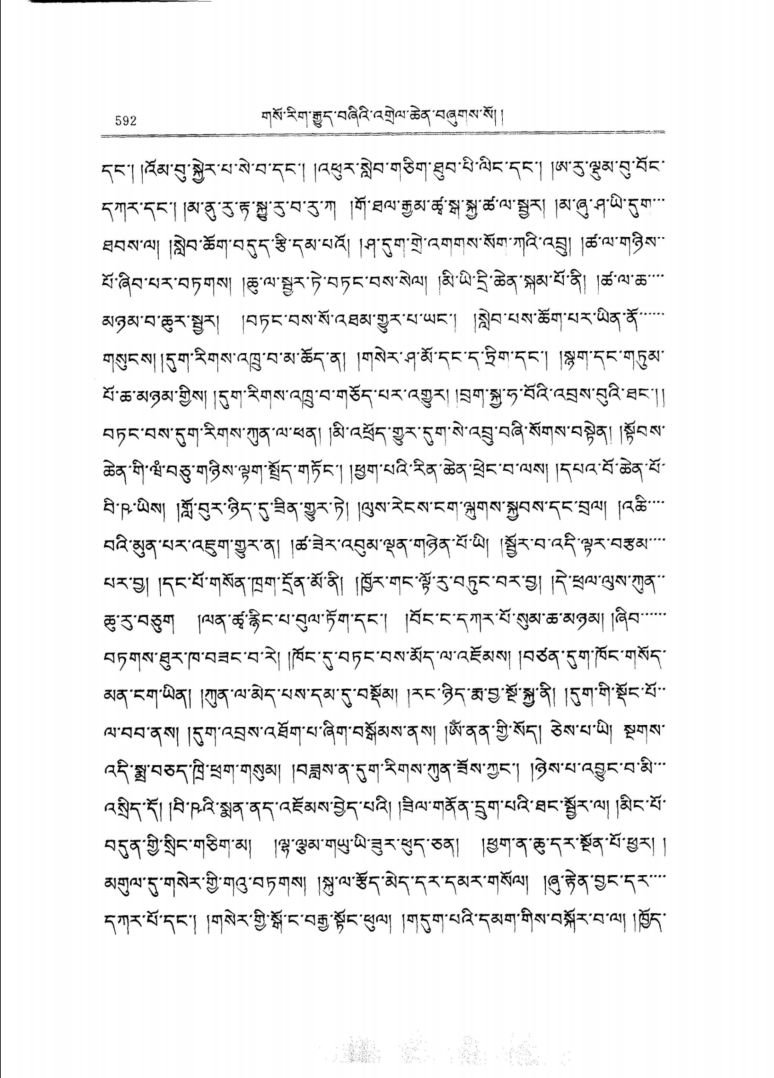 592
གསོ་རིག་རྒྱུད་བཞིའི་འགྲེལ་ཆེན་བཞུགས་སོ། །
དང་། །འོམ་བུ་སྐྱེར་པ་སེ་བ་དང་། །འཕུར་སྙེབ་གཅིག་ཐུབ་པི་ལིང་དང་། །ཨ་རུ་ལྷུམ་བུ་བོང་
དཀར་དང་། །མ་ནུ་རུ་རྟ་སྐྱུ་རུ་བ་རུ་ཀ། །གོ་ཐལ་རྒྱམ་ཚྭ་སྦྲ་སྐྱ་ཚ་ལ་སྦྱར། །མ་ཞུ་ཤ་ཡི་དུག་
ཐབས་ལ། །སླེབ་ཆོག་བདུད་རྩི་དམ་པའོ། །ཤ་དུག་གྲེ་འགགས་སོག་ཀའི་འབྲུ། །ཚ་ལ་གཉིས་
པོ་ཞིབ་པར་བཏགས། །ཆུ་ལ་སྦྱར་ཏེ་བཏང་བས་སེལ། །མི་ཡི་དྲི་ཆེན་སྐམ་པོ་ནི། །ཚ་ལ་ཆ་
མཉམ་བ་ཆུར་སྦྱར། །བཏང་བས་སོ་འཐམ་གྱུར་པ་ཡང་། །སླེབ་པས་ཆོག་པར་ཡིན་ནོ་
གསུངས། །དུག་རིགས་འཁྲུ་བ་མ་ཆོད་ན། །གསེར་ཤ་མོ་དང་ད་ཏྲིག་དང་། །སྟག་དང་གཏུམ་
པོ་ཆ་མཉམ་གྱིས། །དུག་རིགས་འཁྲུ་བ་གཅོད་པར་འགྱུར། །བྲག་སྐྱ་ཧ་བོའི་འབྲས་བུའི་ཐང་། །
བཏང་བས་དུག་རིགས་ཀུན་ལ་ཕན། །མི་འཕྲོད་གྱུར་དུག་སེ་འབྲུ་བཞི་སོགས་བསྟེན། །སྟོབས་
ཆེན་གི་ཝཾ་བཅུ་གཉིས་ལྟག་སྤྲོད་གཏོང་། །ཕྱག་པའི་རིན་ཆེན་ཕྲེང་བ་ལས། །དཔའ་བོ་ཆེན་པོ་
བི་ཥ་ཡིས། །གློ་བུར་ཉིད་དུ་ཟིན་གྱུར་ཏེ། །ལུས་རེངས་ངག་ལྐུགས་སྐྱབས་དང་བྲལ། །འཆི་
བའི་མུན་པར་འཇུག་གྱུར་ན། །ཚ་ཟེར་འབུམ་ལྡན་གཉེན་པོ་ཡི། །སྦྱོར་བ་འདི་ལྟར་བརྩམ་
པར་བྱ། །དང་པོ་གསོན་ཁྲག་དྲོན་མོ་ནི། །ཁྱོར་གང་ལྟོ་རུ་བཏུང་བར་བྱ། །དེ་ཕྲལ་ལུས་ཀུན་
ཆུ་རུ་བཅུག །ལན་ཚྭ་རྙིང་པ་བུལ་ཏོག་དང་། །བོང་ང་དཀར་པོ་སུམ་ཆ་མཉམ། །ཞིབ་
བཏགས་ཐུར་ཁ་བཟང་བ་རེ། །ཁོང་དུ་བཏང་བས་མོད་ལ་འཇོམས། །བཙན་དུག་ཁོང་གསོད་
མན་ངག་ཡིན། །ཀུན་ལ་མེད་པས་དམ་དུ་བསྡོམ། །རང་ཉིད་རྨ་བྱ་སྔོ་སྐྱ་ནི། །དུག་གི་སྡོང་པོ་
ལ་བབ་ནས། །དུག་འབྲས་འཐོག་པ་ཞིག་བསྒོམས་ནས། །ཨོཾ་ནན་གྱི་སོད། ཅེས་པ་ཡི། སྔགས་
འདི་སྨྲ་བཅད་ཁྲི་ཕྲག་གསུམ། །བཟླས་ན་དུག་རིགས་ཀུན་ཟོས་ཀྱང་། །ཉེས་པ་འབྱུང་བ་མི་
འསྲིད་དོ། །བི་ཥའི་སྨན་ནད་འཇོམས་བྱེད་པའི། །ཟིལ་གནོན་དྲུག་པའི་ཐང་སྦྱོར་ལ། །མིང་པོ་
བདུན་གྱི་སྲིང་གཅིག་མ། །ལྷ་ལྕམ་གཡུ་ཡི་ཟུར་ཕུད་ཅན། །ཕྱག་ན་ཆུ་དར་སྔོན་པོ་ཕྱར། །
མགུལ་དུ་གསེར་གྱི་གའུ་བཏགས། །སྐུ་ལ་རྩོད་མེད་དར་དམར་གསོལ། །ཞུ་རྟེན་བྱང་དར་
དཀར་པོ་དང་། །གསེར་གྱི་སྒོ་ང་བརྒྱ་སྟོང་ཕུལ། །གདུག་པའི་དམག་གིས་བསྐོར་བ་ལ། །ཁྱོད་